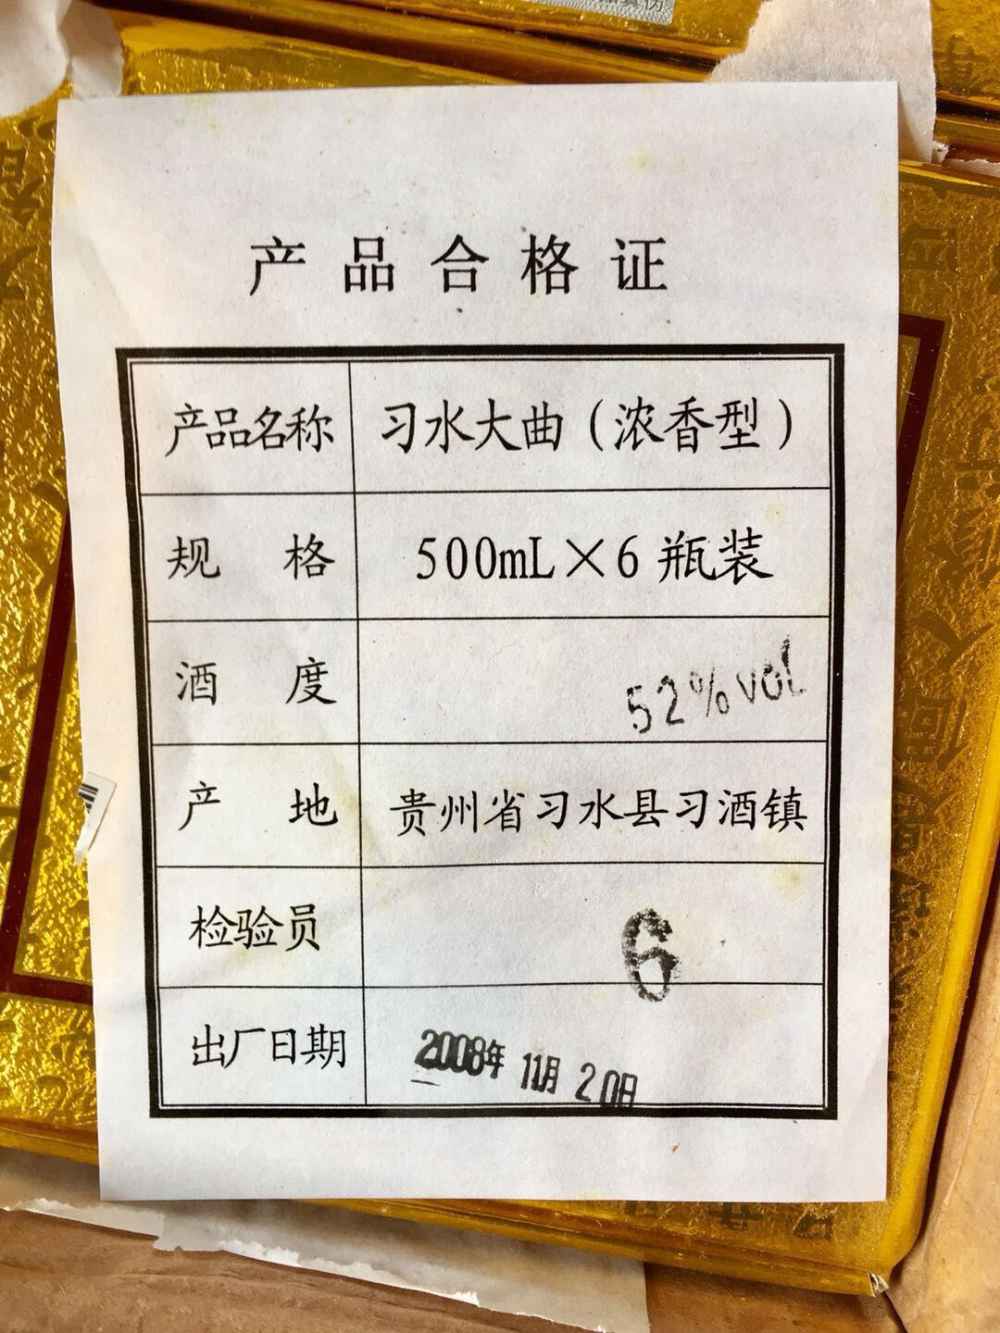 产品合格证
产品名称 习水大曲（浓香型）
规格 500mL×6瓶装
酒度 52%vol
产地 贵州省习水县习酒镇
检验员 6
出厂日期 2008年 11月 20日